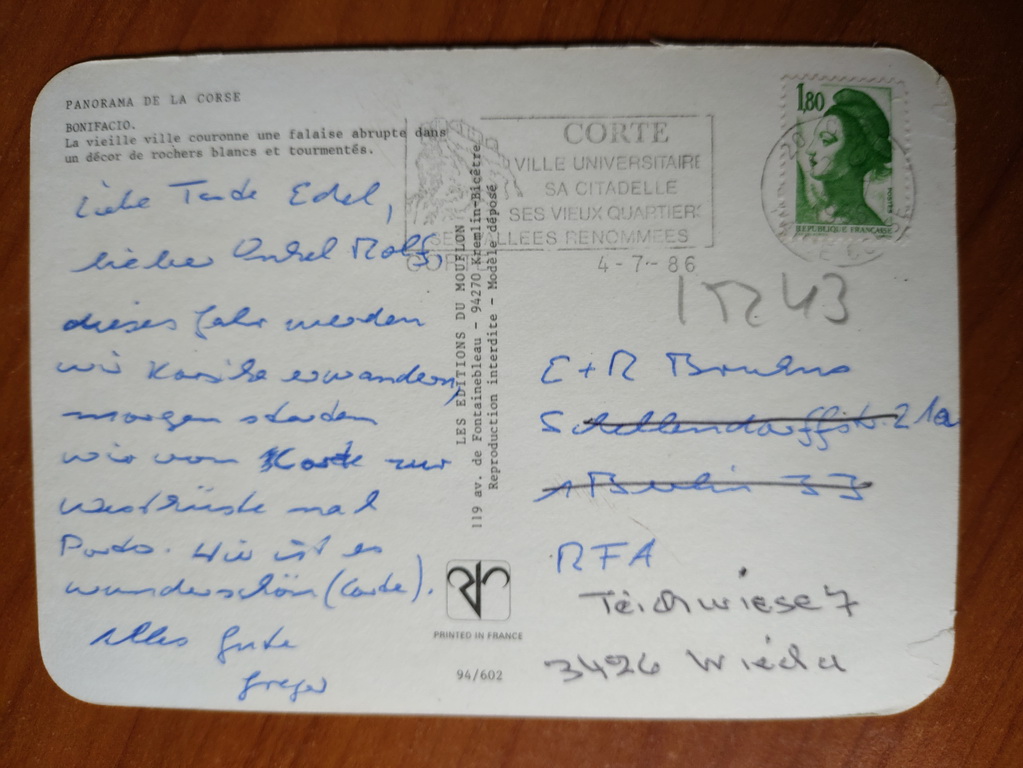 PANORAMA DE LA CORSE
BONIFACIO.
La vieille ville couronne une falaise abrupte dans
un décor de rochers blancs et tourmentés.
Liebe Tante Edel,
lieber Onkel Rolf,
dieses Jahr werden
wir Korsika erwandern,
morgen starten
wir von Korte zur
Westküste nach
Porto. Hier ist es
wunderschön (Corte).
Alles Gute
Gregor
LES EDITIONS DU MOUFLON
119 av. de Fontainebleau - 94270 Kremlin-Bicêtre
Reproduction interdite - Modèle déposé
PRINTED IN FRANCE
94/602
CORTE
VILLE UNIVERSITAIRE
SA CITADELLE
SES VIEUX QUARTIERS
SES VALLEES RENOMMEES
4-7-86
1,80
REPUBLIQUE FRANCAISE
E + R
Schellendorffstr. 21a
1 Berlin 33
RFA
Teichwiese 7
3426 Wieda